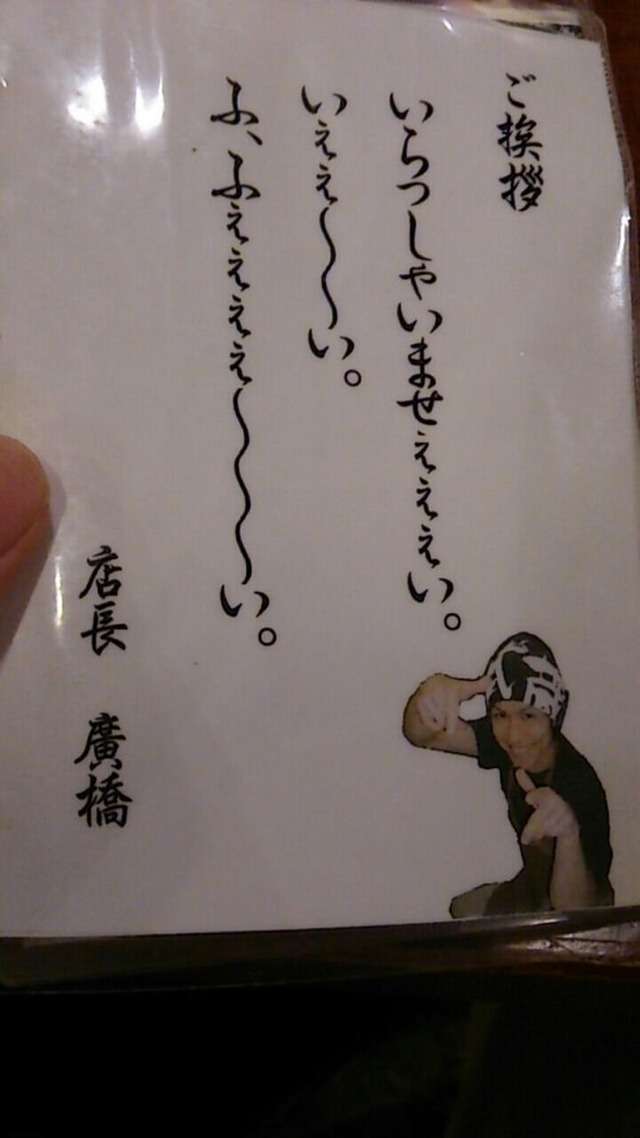 ご挨拶
いらっしゃいませぇぇぇい。
いぇぇ〜〜い。
ふ、ふぇぇぇぇ〜〜〜い。
店長　廣橋